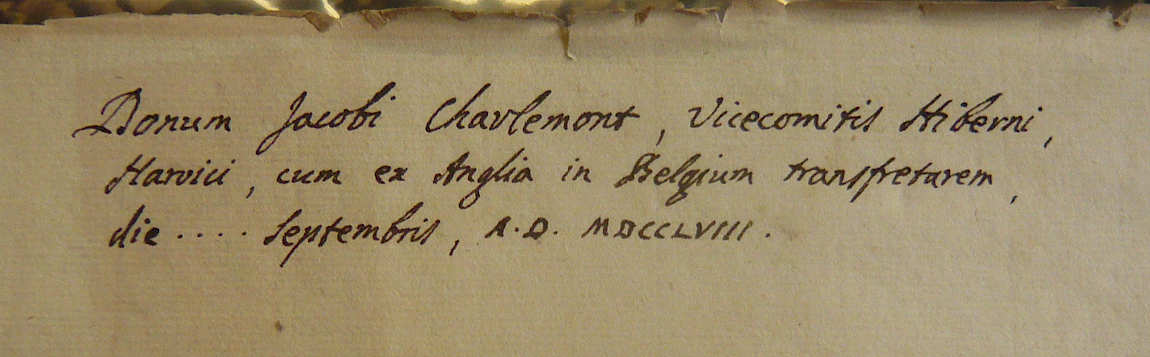 Donum Jacobi Charlemont, Vicecomitis Hiberni,
Harvici, cum ex Anglia in Belgium transfretarem,
die .... Septembris, A.D. MDCCLVIII.